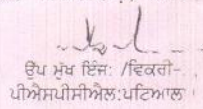 ਉਪ ਮੁੱਖ ਇੰਜ: /ਵਿਕਰੀ-
ਪੀਐਸਪੀਸੀਐਲ:ਪਟਿਆਲਾ